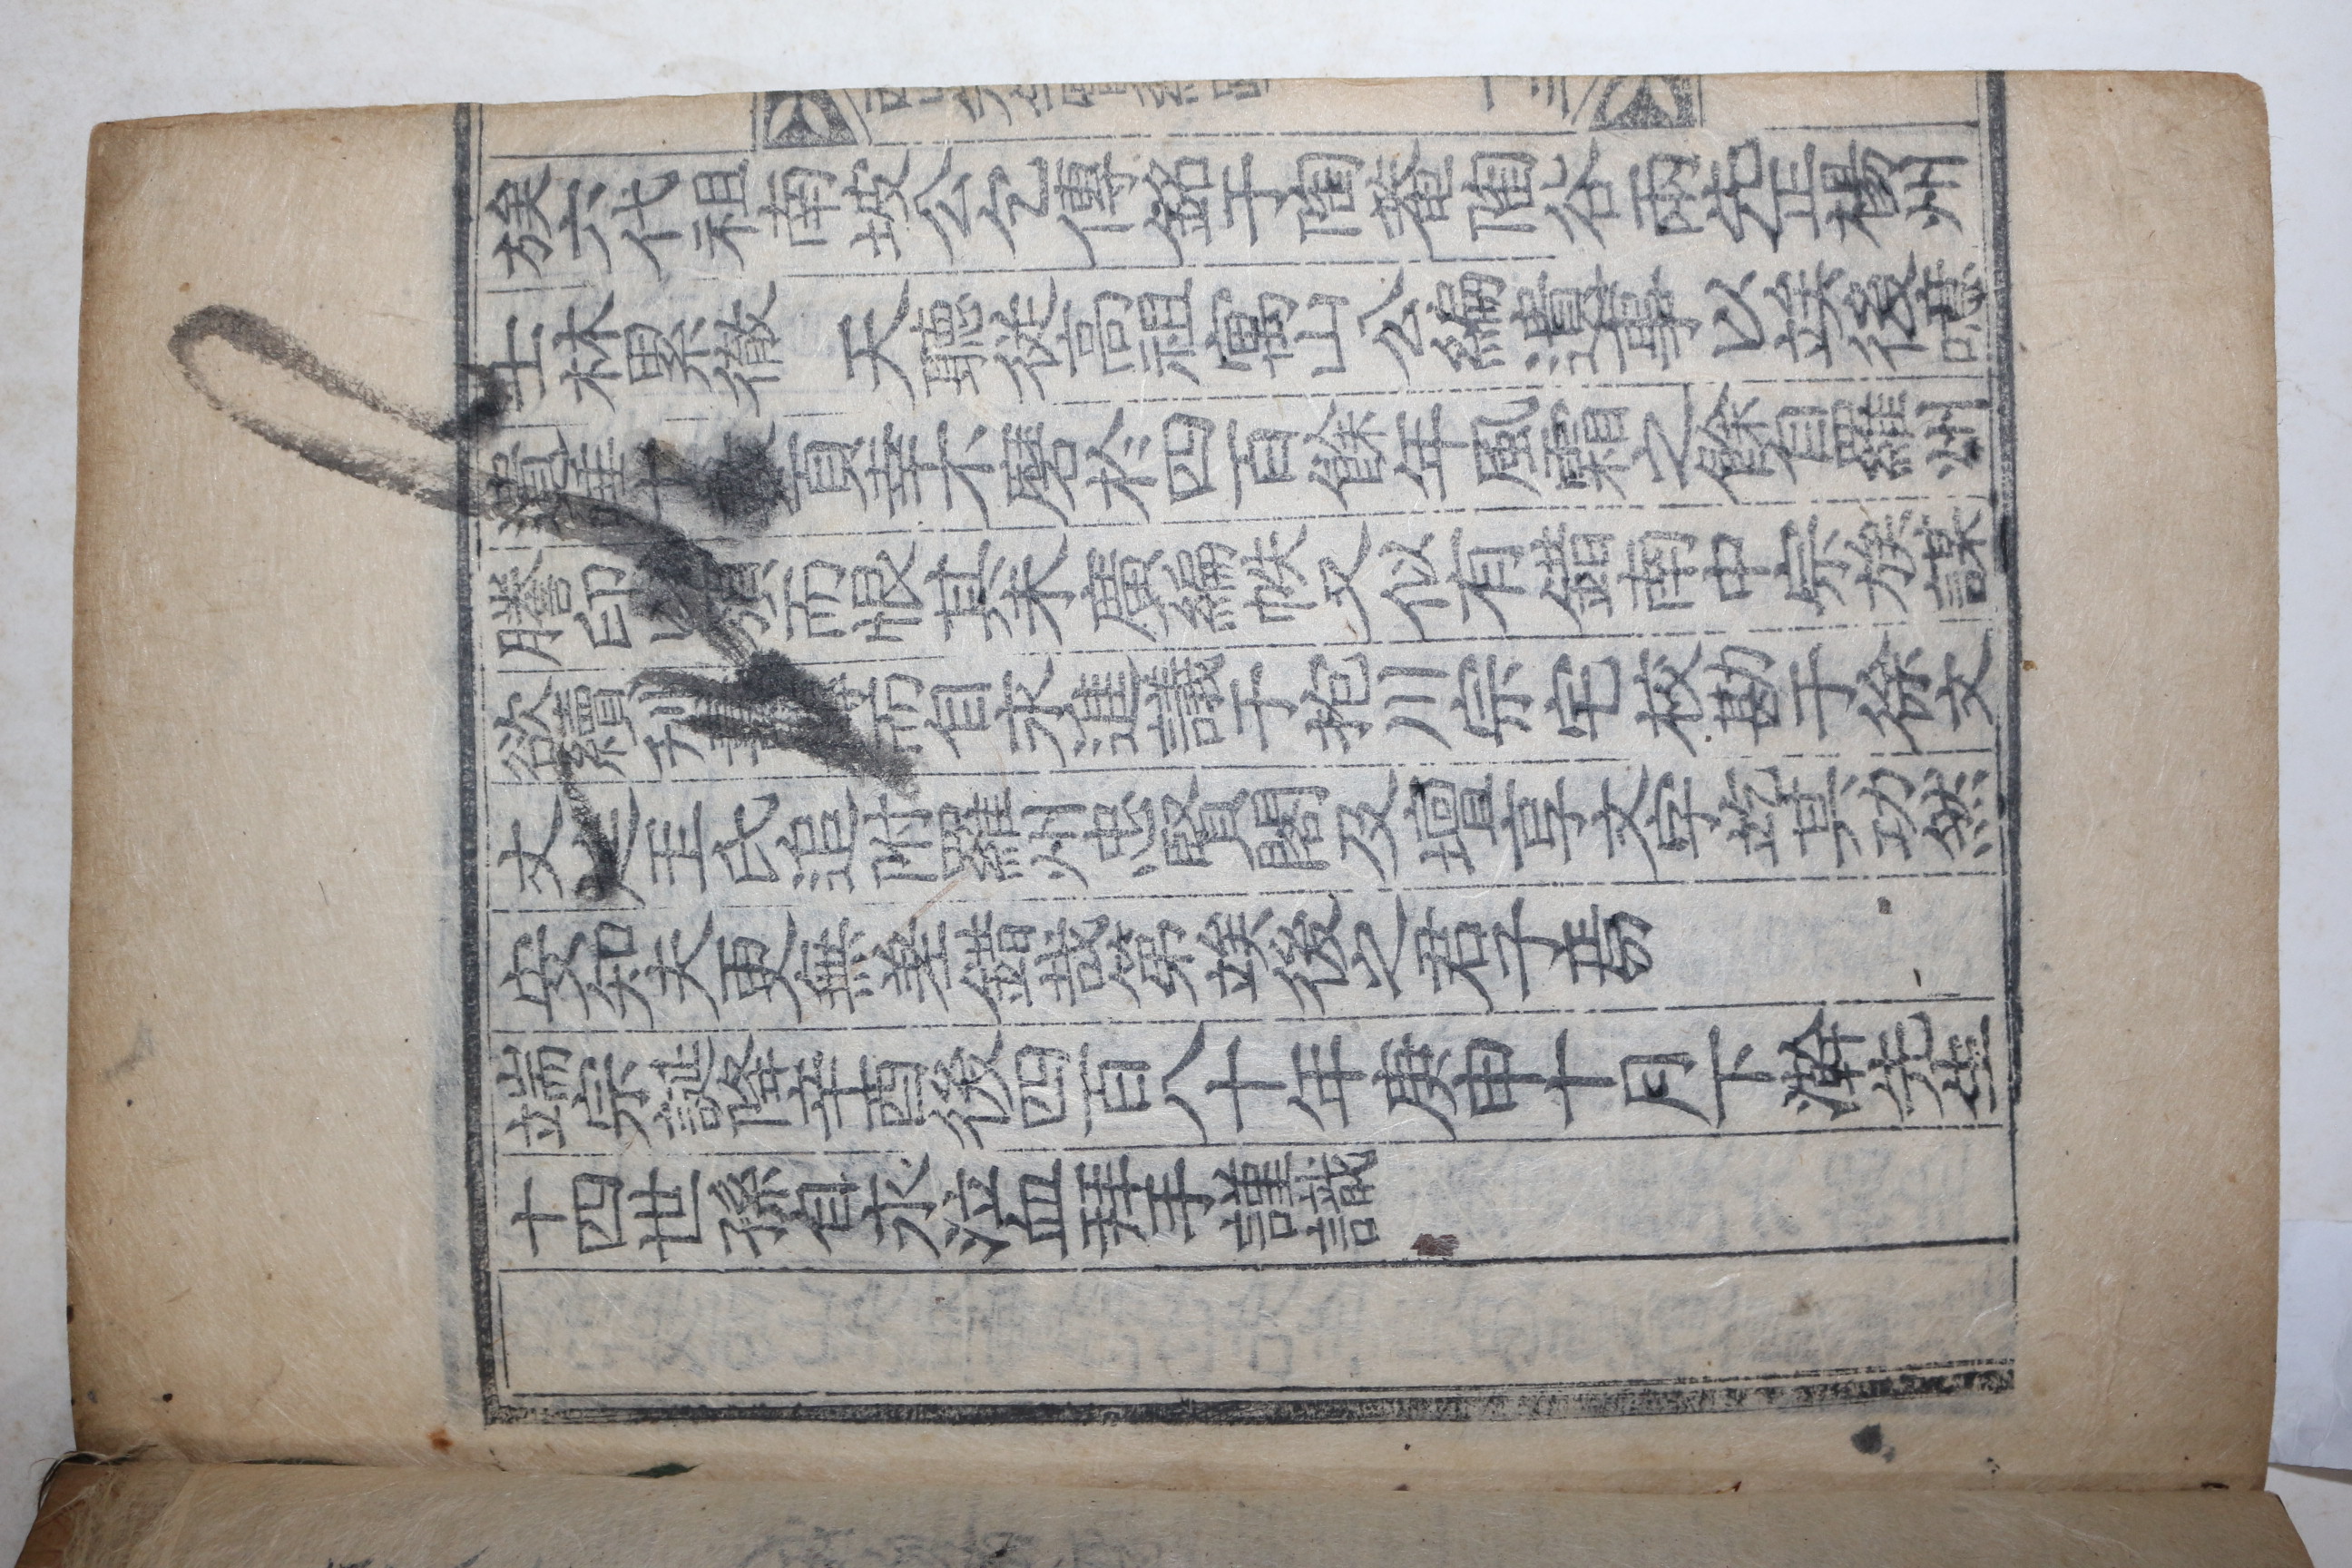 族六代祖南坡公乞傳銘于陶菴陶谷兩先正楊州
士林累徹 天聽從高祖寓山公編遺事以竢後噫
遺 十 頁幸不磨於四百餘年風霜之餘自羅州
謄印以 而恨其未廣編帙又似有錯南中宗族謀
欲續刊 而自永進議于抱川宗宅校勘于徐文
丈 王氏追附羅州忠賢閣及壇享文字訖其功然
安知夫更無差錯哉第竢後之君子焉
端宗誕降辛酉後四百八十年庚申十月下澣先生
十四世孫自永泣血拜手謹識